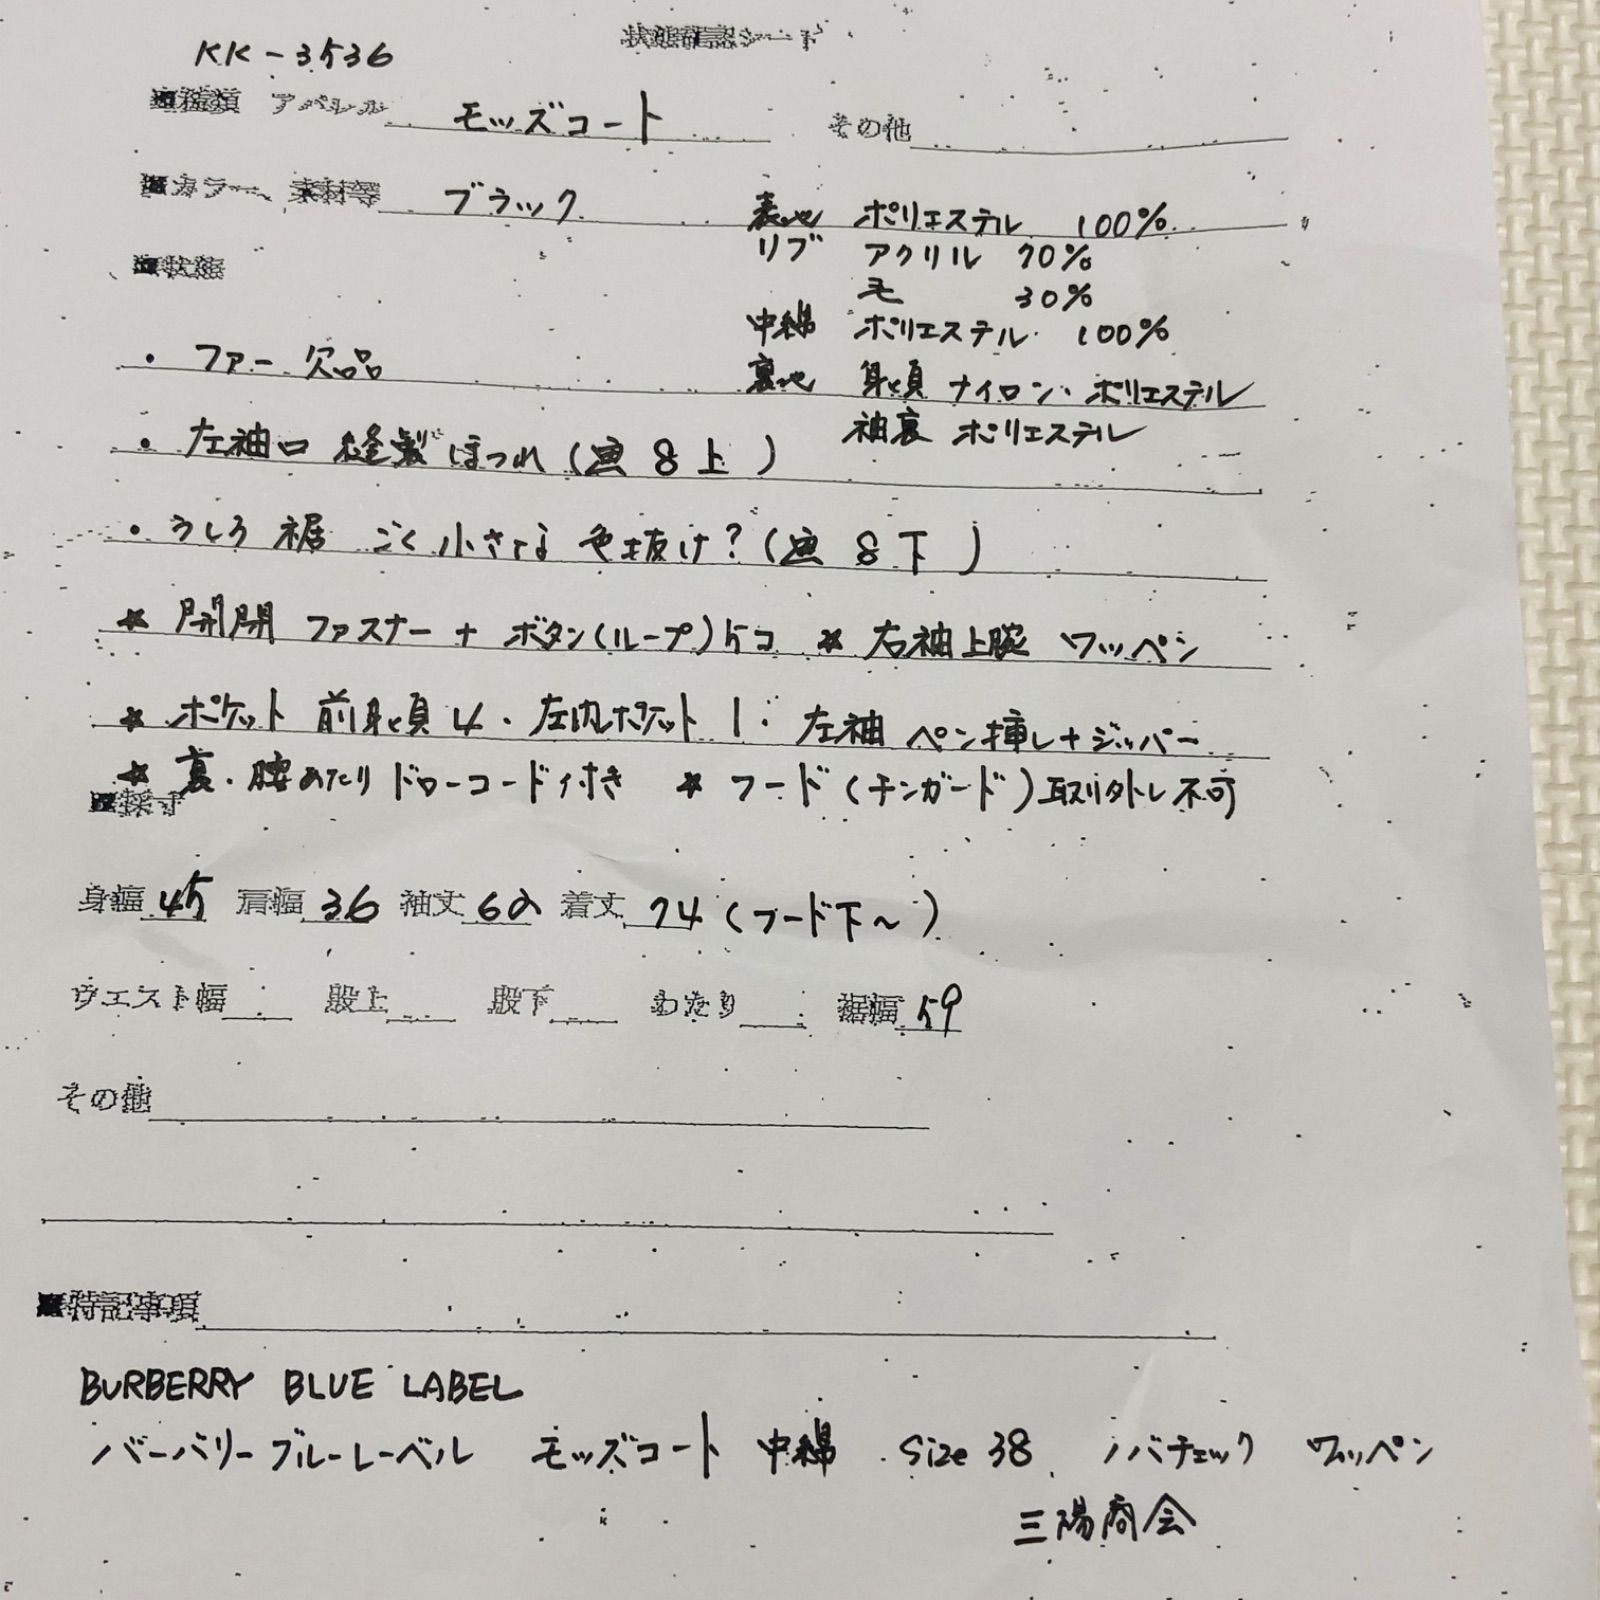 状態確認シート
KK-3536
■種類 アパレル モッズコート その他
■カラー、素材等 ブラック 表地 ポリエステル 100%
リブ アクリル 70%
毛 30%
■状態
中綿 ポリエステル 100%
・ファー欠品 裏地 身頃 ナイロン・ポリエステル
袖裏 ポリエステル
・左袖口 縫製ほつれ( 8上)
・うしろ裾 ごく小さな色抜け?( 8下)
* 開閉 ファスナー+ボタン(ループ)5コ * 右袖上腕 ワッペン
* ポケット 前身頃4・左内ポケット1・左袖 ペン挿し+ジッパー
* 裏・腰あたりドローコード付き * フード(チンガード)取り外し不可
■採寸
身幅 45 肩幅 36 袖丈 62 着丈 74(フード下~)
ウエスト幅 股上 股下 わたり 裾幅 59
その他
■特記事項
BURBERRY BLUE LABEL
バーバリーブルーレーベル モッズコート 中綿 size 38 ノバチェック ワッペン
三陽商会